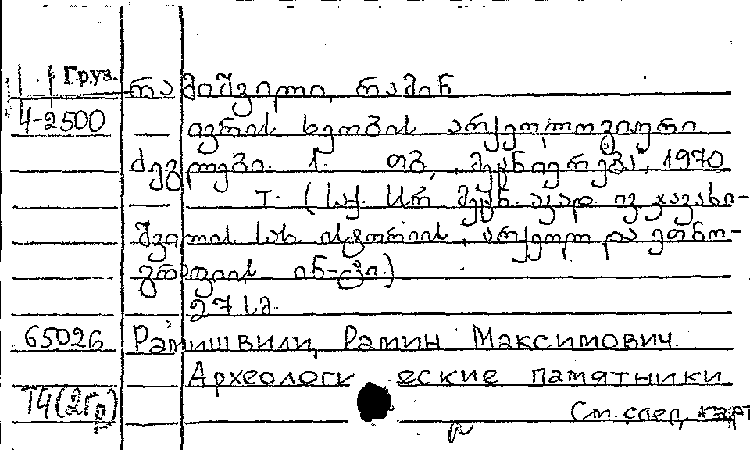 Груз.
რამიშვილი, რამინ
4-2500
— ივრის ხეობის არქეოლოგიური
ძეგლები. 1. თბ., „მეცნიერება", 1970
— Т. (საქ. სსრ მეცნ. აკად. ივ. ჯავახი-
შვილის სახ. ისტორიის, არქეოლ. და ეთნო-
გრაფიის ინ-ტი.)
27 სმ.
65026 Рамишвили, Рамин Максимович
Археологические памятники
Т4(2Гр)
См. след. карт